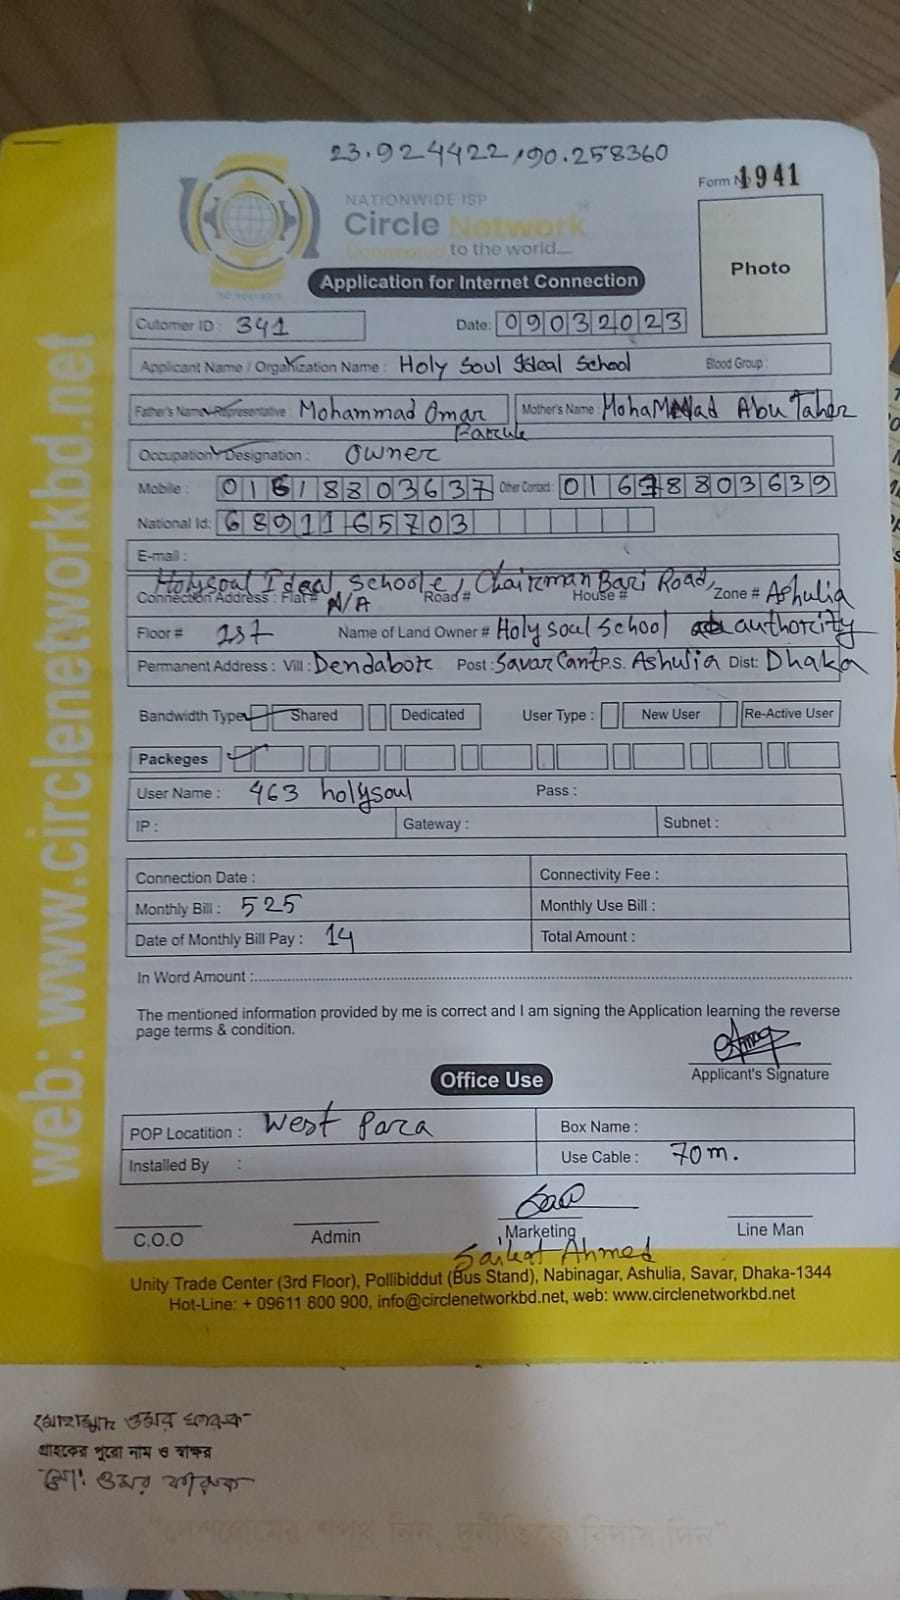 23.924422,90.258360
Form No 1941
NATIONWIDE ISP
Circle Network
Connected to the world....
Photo
Application for Internet Connection
Cutomer ID : 341 Date: 09032023
Applicant Name / Organization Name : Holy Soul Ideal School Blood Group :
Father's Name / Representative : Mohammad Omar Mother's Name : Mohammad Abu Taher
Occupation / Designation : Owner
Mobile : 01618803637 Other Contact : 01678803639
National Id: 6891165703
E-mail :
Holysoul Ideal Schoole, Chairman Bari Road,
Connection Address : Flat # N/A Road # House # Zone # Ashulia
Floor # 1st Name of Land Owner # Holy soul School authority
Permanent Address : Vill : Dendabor Post : Savar Cant P.S. Ashulia Dist: Dhaka
Bandwidth Type Shared Dedicated User Type : New User Re-Active User
Packeges
User Name : 463 holysoul Pass :
IP : Gateway : Subnet :
Connection Date : Connectivity Fee :
Monthly Bill : 525 Monthly Use Bill :
Date of Monthly Bill Pay : 14 Total Amount :
In Word Amount :
The mentioned information provided by me is correct and I am signing the Application learning the reverse
page terms & condition.
Applicant's Signature
Office Use
POP Locatition : West Para Box Name :
Installed By : Use Cable : 70m.
C.O.O Admin Marketing Line Man
Saikat Ahmed
Unity Trade Center (3rd Floor), Pollibiddut (Bus Stand), Nabinagar, Ashulia, Savar, Dhaka-1344
Hot-Line: + 09611 800 900, info@circlenetworkbd.net, web: www.circlenetworkbd.net
web: www.circlenetworkbd.net
মোহাম্মদ ওমর ফারুক
গ্রাহকের পুরো নাম ও স্বাক্ষর
মো: ওমর ফারুক
"দেশপ্রেমের শপথ নিন, দুর্নীতিকে বিদায় দিন"